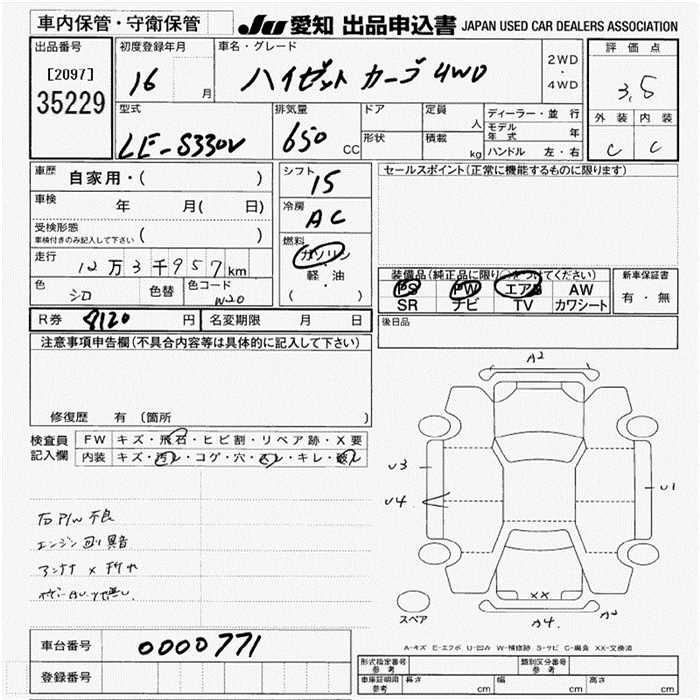 車内保管・守衛保管 JU 愛知 出品申込書 JAPAN USED CAR DEALERS ASSOCIATION
出品番号 初度登録年月 車名・グレード 評価点
[2097] 35229 16 月 ハイゼット カーゴ 4WD 2WD・4WD 3.5
型式 排気量 ドア 定員 人 ディーラー・並行 外装 内装
LE-S330V 650 CC 形状 積載 kg モデル年式 年 C C
ハンドル 左・右
車歴 自家用・( ) シフト 15 セールスポイント(正常に機能するものに限ります)
車検 年 月( 日) 冷房 AC
受検形態 車検付きのみ記入して下さい ( )
燃料 ガソリン・軽・油 ( )
走行 12万3千957km
色 シロ 色替 色コード W20
装備品(純正品に限り○をつけてください) 新車保証書
PS PW エアB AW 有・無
SR ナビ TV カワシート
R券 8120 円 名変期限 月 日 後日品
注意事項申告欄(不具合内容等は具体的に記入して下さい)
修復歴 有 (箇所 )
検査員記入欄 FW キズ・飛石・ヒビ割・リペア跡・X要
内装 キズ・汚レ・コゲ・穴・スレ・キレ・破レ
右P/W不良
エンジン回り異音
アンテナ×
A2
U3
U4
U1
XX
A4
A2
スペア
A-キズ E-エクボ U-凹み W-補修跡 S-サビ C-腐食 XX-交換済
車台番号 0000771
登録番号
形式指定番号 参考 類別区分番号 参考
車庫証明用 参考 長さ cm 幅 cm 高さ cm